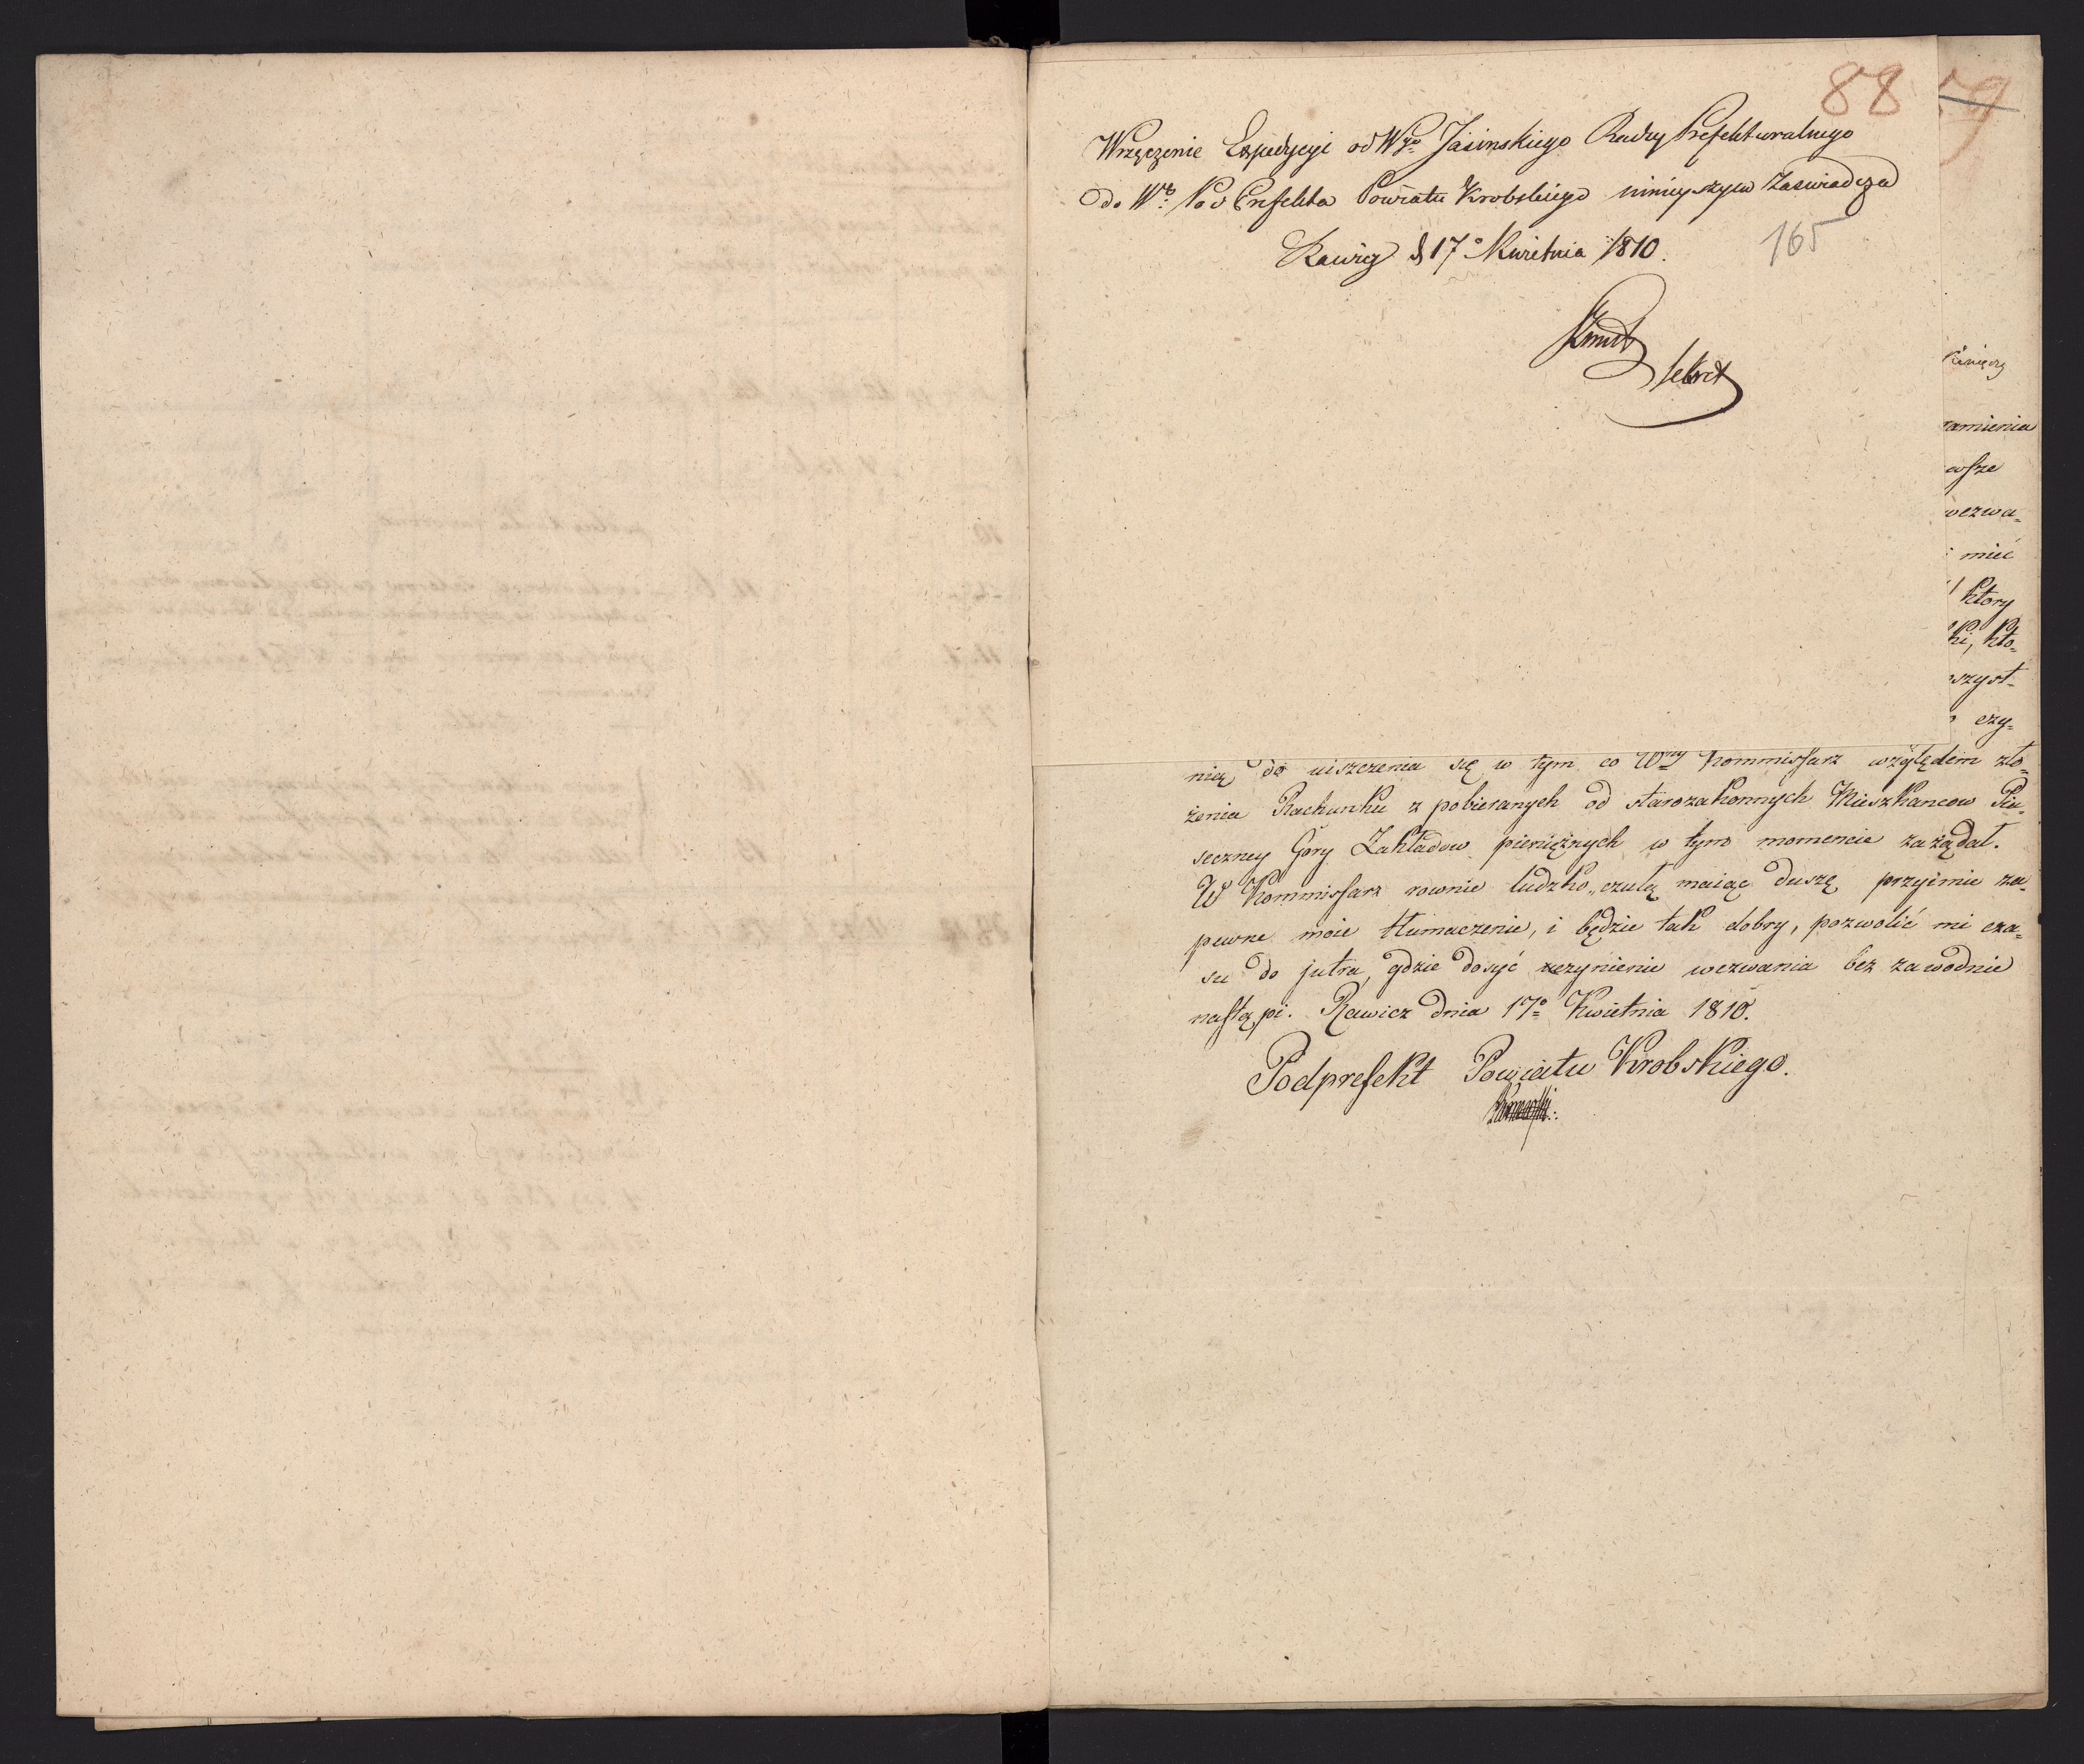 88
79
Wręczenie Expedycyi od Wgo Jasinskiego Rady Prefekturalnego
do Wo Pod Prefekta Powiatu Krobskiego ninieyszym zaswiadcza
Rawicz d 17o Kwietnia 1810.
165
Sekret
ramienia
wsze
wezwa=
mieć
ktory
ki, kto=
wszyst=
czy=
nię do uiszczenia się w tym co Wny Kommissarz względem zło=
żenia Rachunku z pobieranych od starozakonnych Mieszkancow Pia=
seczney Gory Zakładow pieniężnych w tym momencie zażądał.
W Kommissarz rownie ludzko„czułą maiąc duszę przyimie za=
pewne moie tłumaczenie, i będzie tak dobry, pozwolić mi cza=
su do jutra, gdzie dosyć uczynienie wezwania bez zawodnie
nastąpi. Rawicz dnia 17o Kwietnia 1810.
Podprefekt Powiatu Krobskiego.